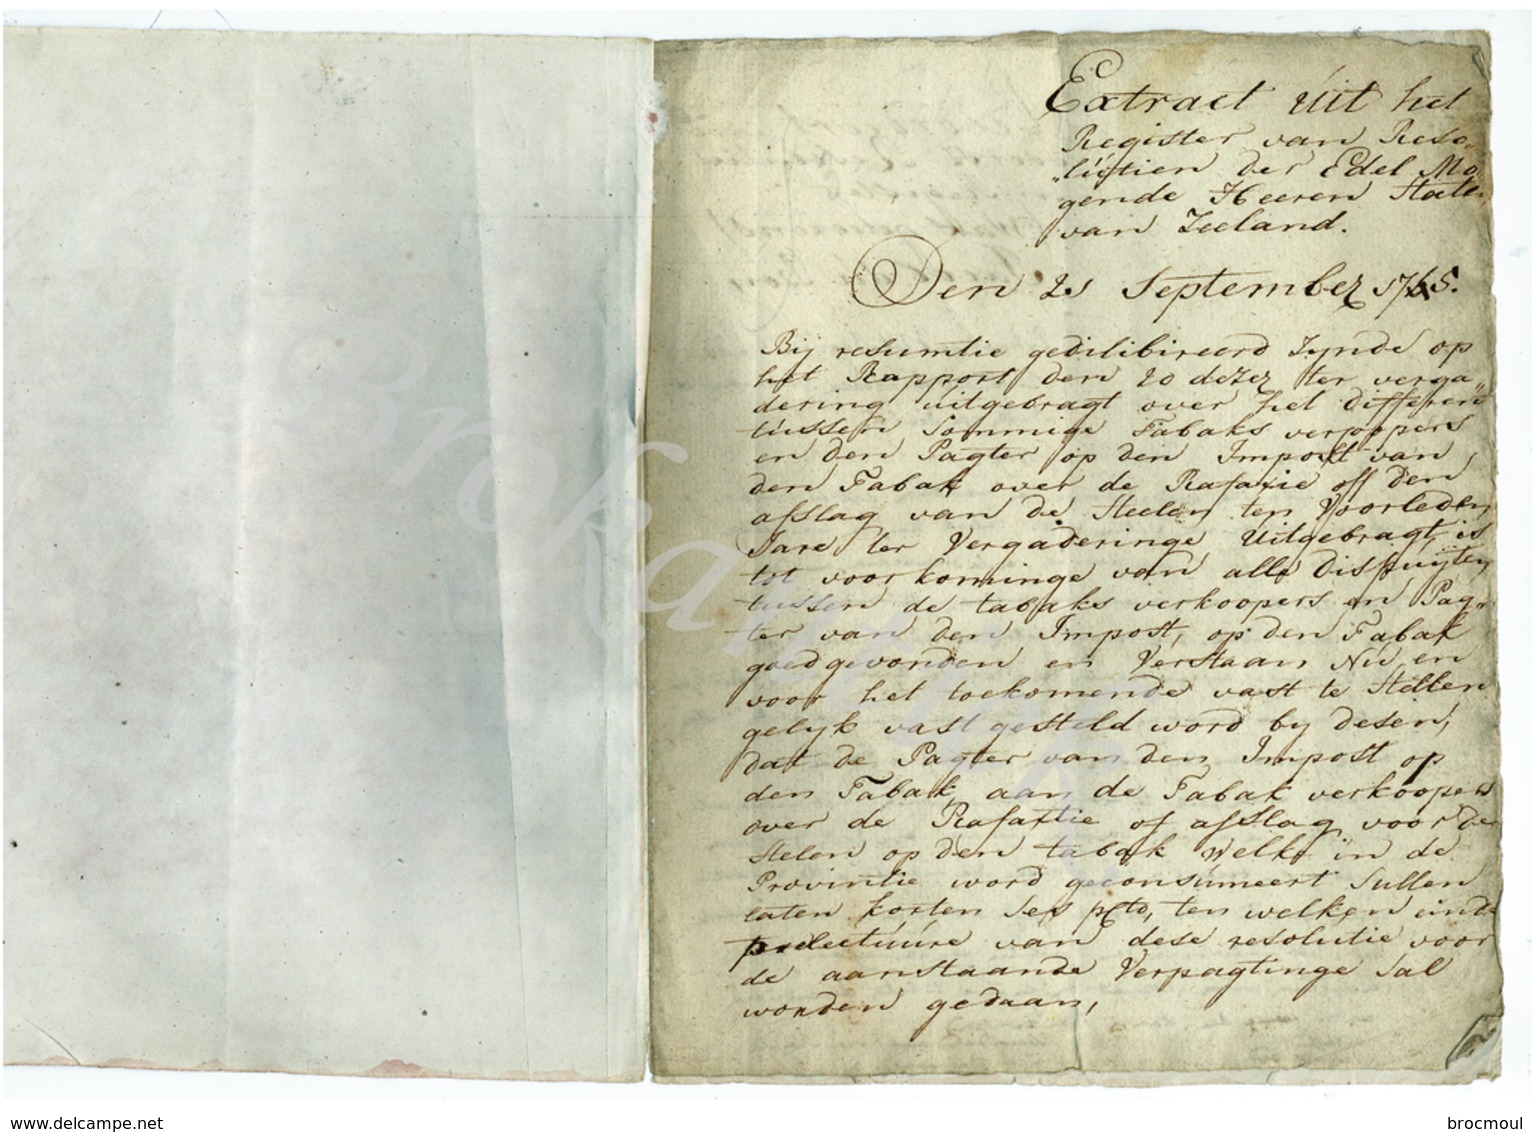 Extract uit het
Register van Reso„
„lutien der Edel Mo
gende Heeren Staten
van Zeeland.
Den 21 September 1765.
Bij resumtie gedilibireerd Zynde op
het Rapport den 20 dezer ter verga„
dering uitgebragt over het differen
tussen Sommige Tabaks verkopers
en den Pagter op den Impost van
den Tabak over de Rafaxie off den
afslag van de Steelen ten Voorleden
Jare ter Vergaderinge Uitgebragt, is
tot voorkominge van alle disputyten
tussen de tabaks verkoopers en Pag„
ter van den Impost, op den Tabak
goedgevonden en Verstaan Nu en
voor het toekomende vast te Stellen
gelyk vast gesteld word by desen,
dat de Pagter van den Impost op
den Tabak, aan de Tabak verkoopers
over de Rafaxtie of afslag voor de
Stelen op den tabak welke in de
Provintie word geconsumeert Sullen
laten korten Ses pcto, ten welken einde
prelectuure van dese resolutie voor
de aanstaande Verpagtinge Sal
worden gedaan,
www.delcampe.net
brocmoul